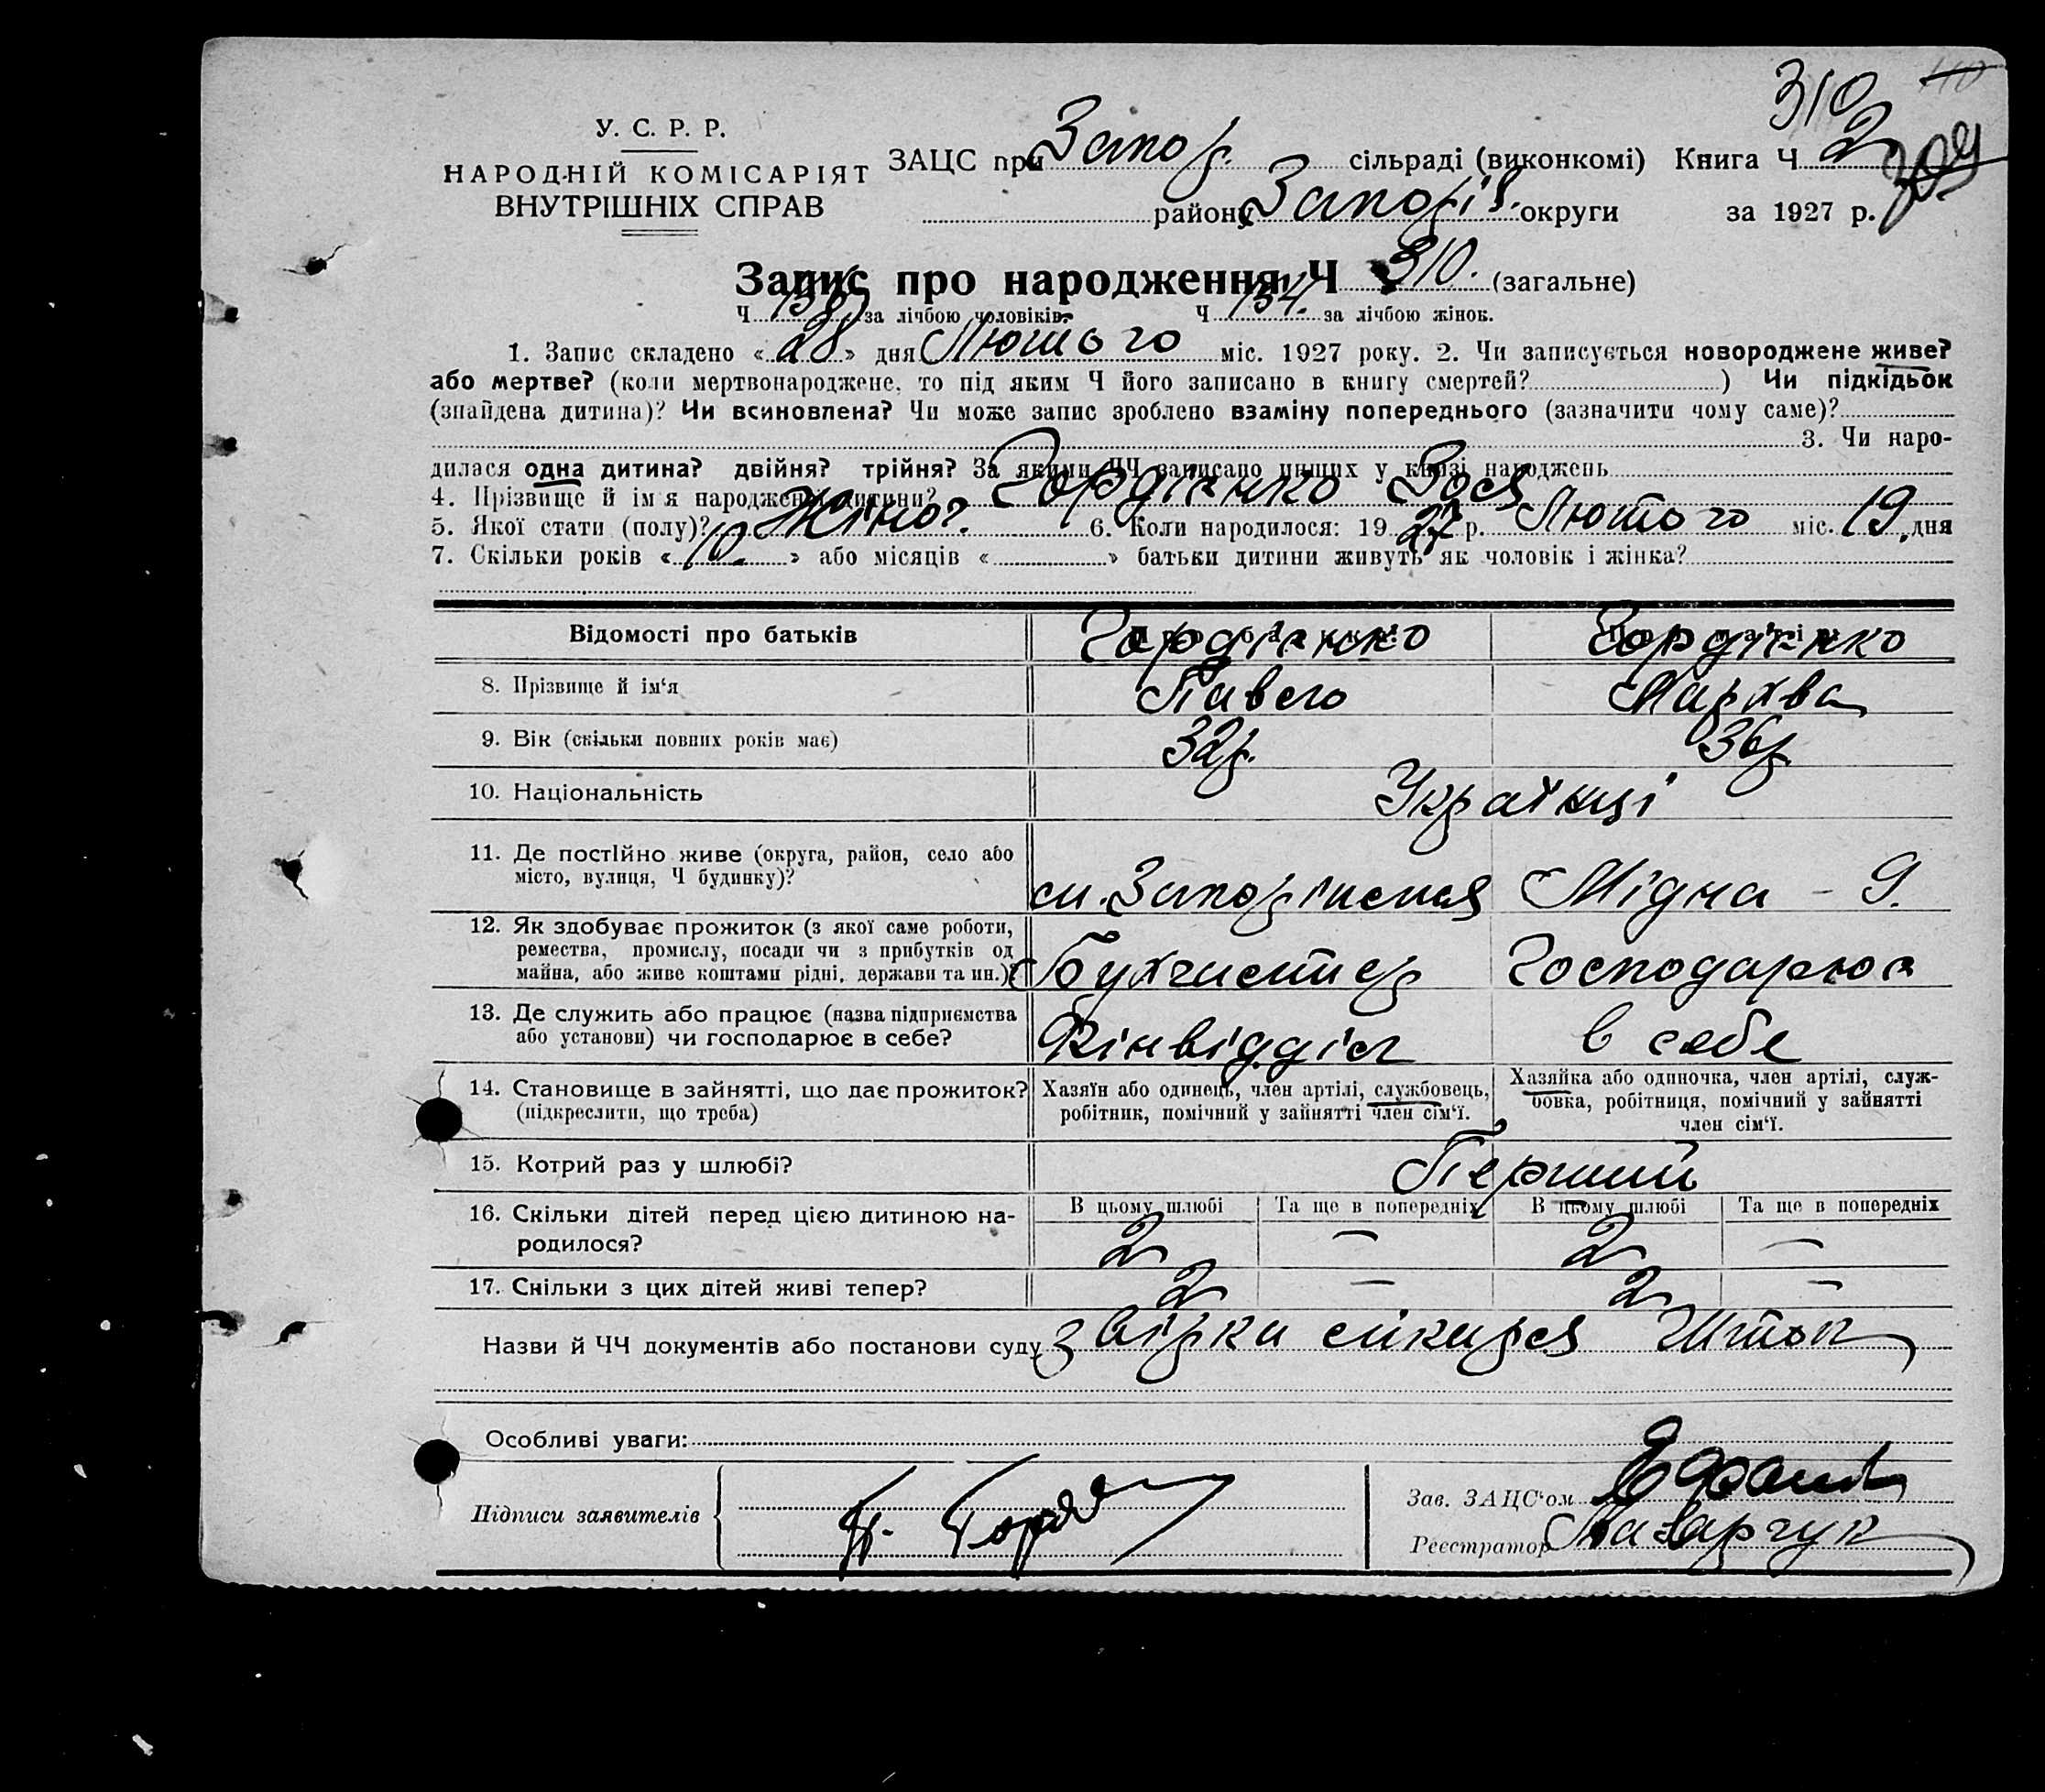 310
У. С. Р. Р.
НАРОДНІЙ КОМІСАРІЯТ
ВНУТРІШНІХ СПРАВ
ЗАЦС при Запор. сільраді (виконкомі) Книга Ч 2
району Запоріз. округи за 1927 р.
Запис про народження Ч 310. (загальне)
Ч за лічбою чоловіків. Ч 134. за лічбою жінок.
1. Запис складено «28» дня Лютого міс. 1927 року. 2. Чи записується новороджене живе?
або мертве? (коли мертвонароджене, то під яким Ч його записано в книгу смертей? ) Чи підкідьок
(знайдена дитина)? Чи всиновлена? Чи може запис зроблено взаміну попереднього (зазначити чому саме)?
3. Чи наро-
дилася одна дитина? двійня? трійня? За якими ЧЧ записано инших у книзі народжень
4. Прізвище й ім'я народженої дитини? Гордієнко Зоя
5. Якої стати (полу)? Жіноч. 6. Коли народилося: 1927 р. Лютого міс. 19 дня
7. Скільки років «10.» або місяців « » батьки дитини живуть як чоловік і жінка?
Відомості про батьків Гордієнко Гордієнко
8. Прізвище й ім‘я Павело Мархва
9. Вік (скільки повних років має) 32р. 36р.
10. Національність Українці
11. Де постійно живе (округа, район, село або
місто, вулиця, Ч будинку)? Мідна - 9.
12. Як здобуває прожиток (з якої саме роботи,
ремества, промислу, посади чи з прибутків од
майна, або живе коштами рідні, держави та ин.)? Бухгалтер Господарює
13. Де служить або працює (назва підприємства
або установи) чи господарює в себе? Фінвідділ в себе
14. Становище в зайнятті, що дає прожиток?
(підкреслити, що треба)
Хазяїн або одинець, член артілі, службовець,
робітник, помічний у зайнятті член сім‘ї.
Хазяйка або одиночка, член артілі, служ-
бовка, робітниця, помічний у зайнятті
член сім‘ї.
15. Котрий раз у шлюбі? Перший
16. Скільки дітей перед цією дитиною на-
родилося?
В цьому шлюбі Та ще в попередніх В цьому шлюбі Та ще в попередніх
2 — 2 —
17. Скільки з цих дітей живі тепер? 2 — 2 —
Назви й ЧЧ документів або постанови суду
Особливі уваги:
Підписи заявителів
Зав. ЗАЦС‘ом
Реєстратор